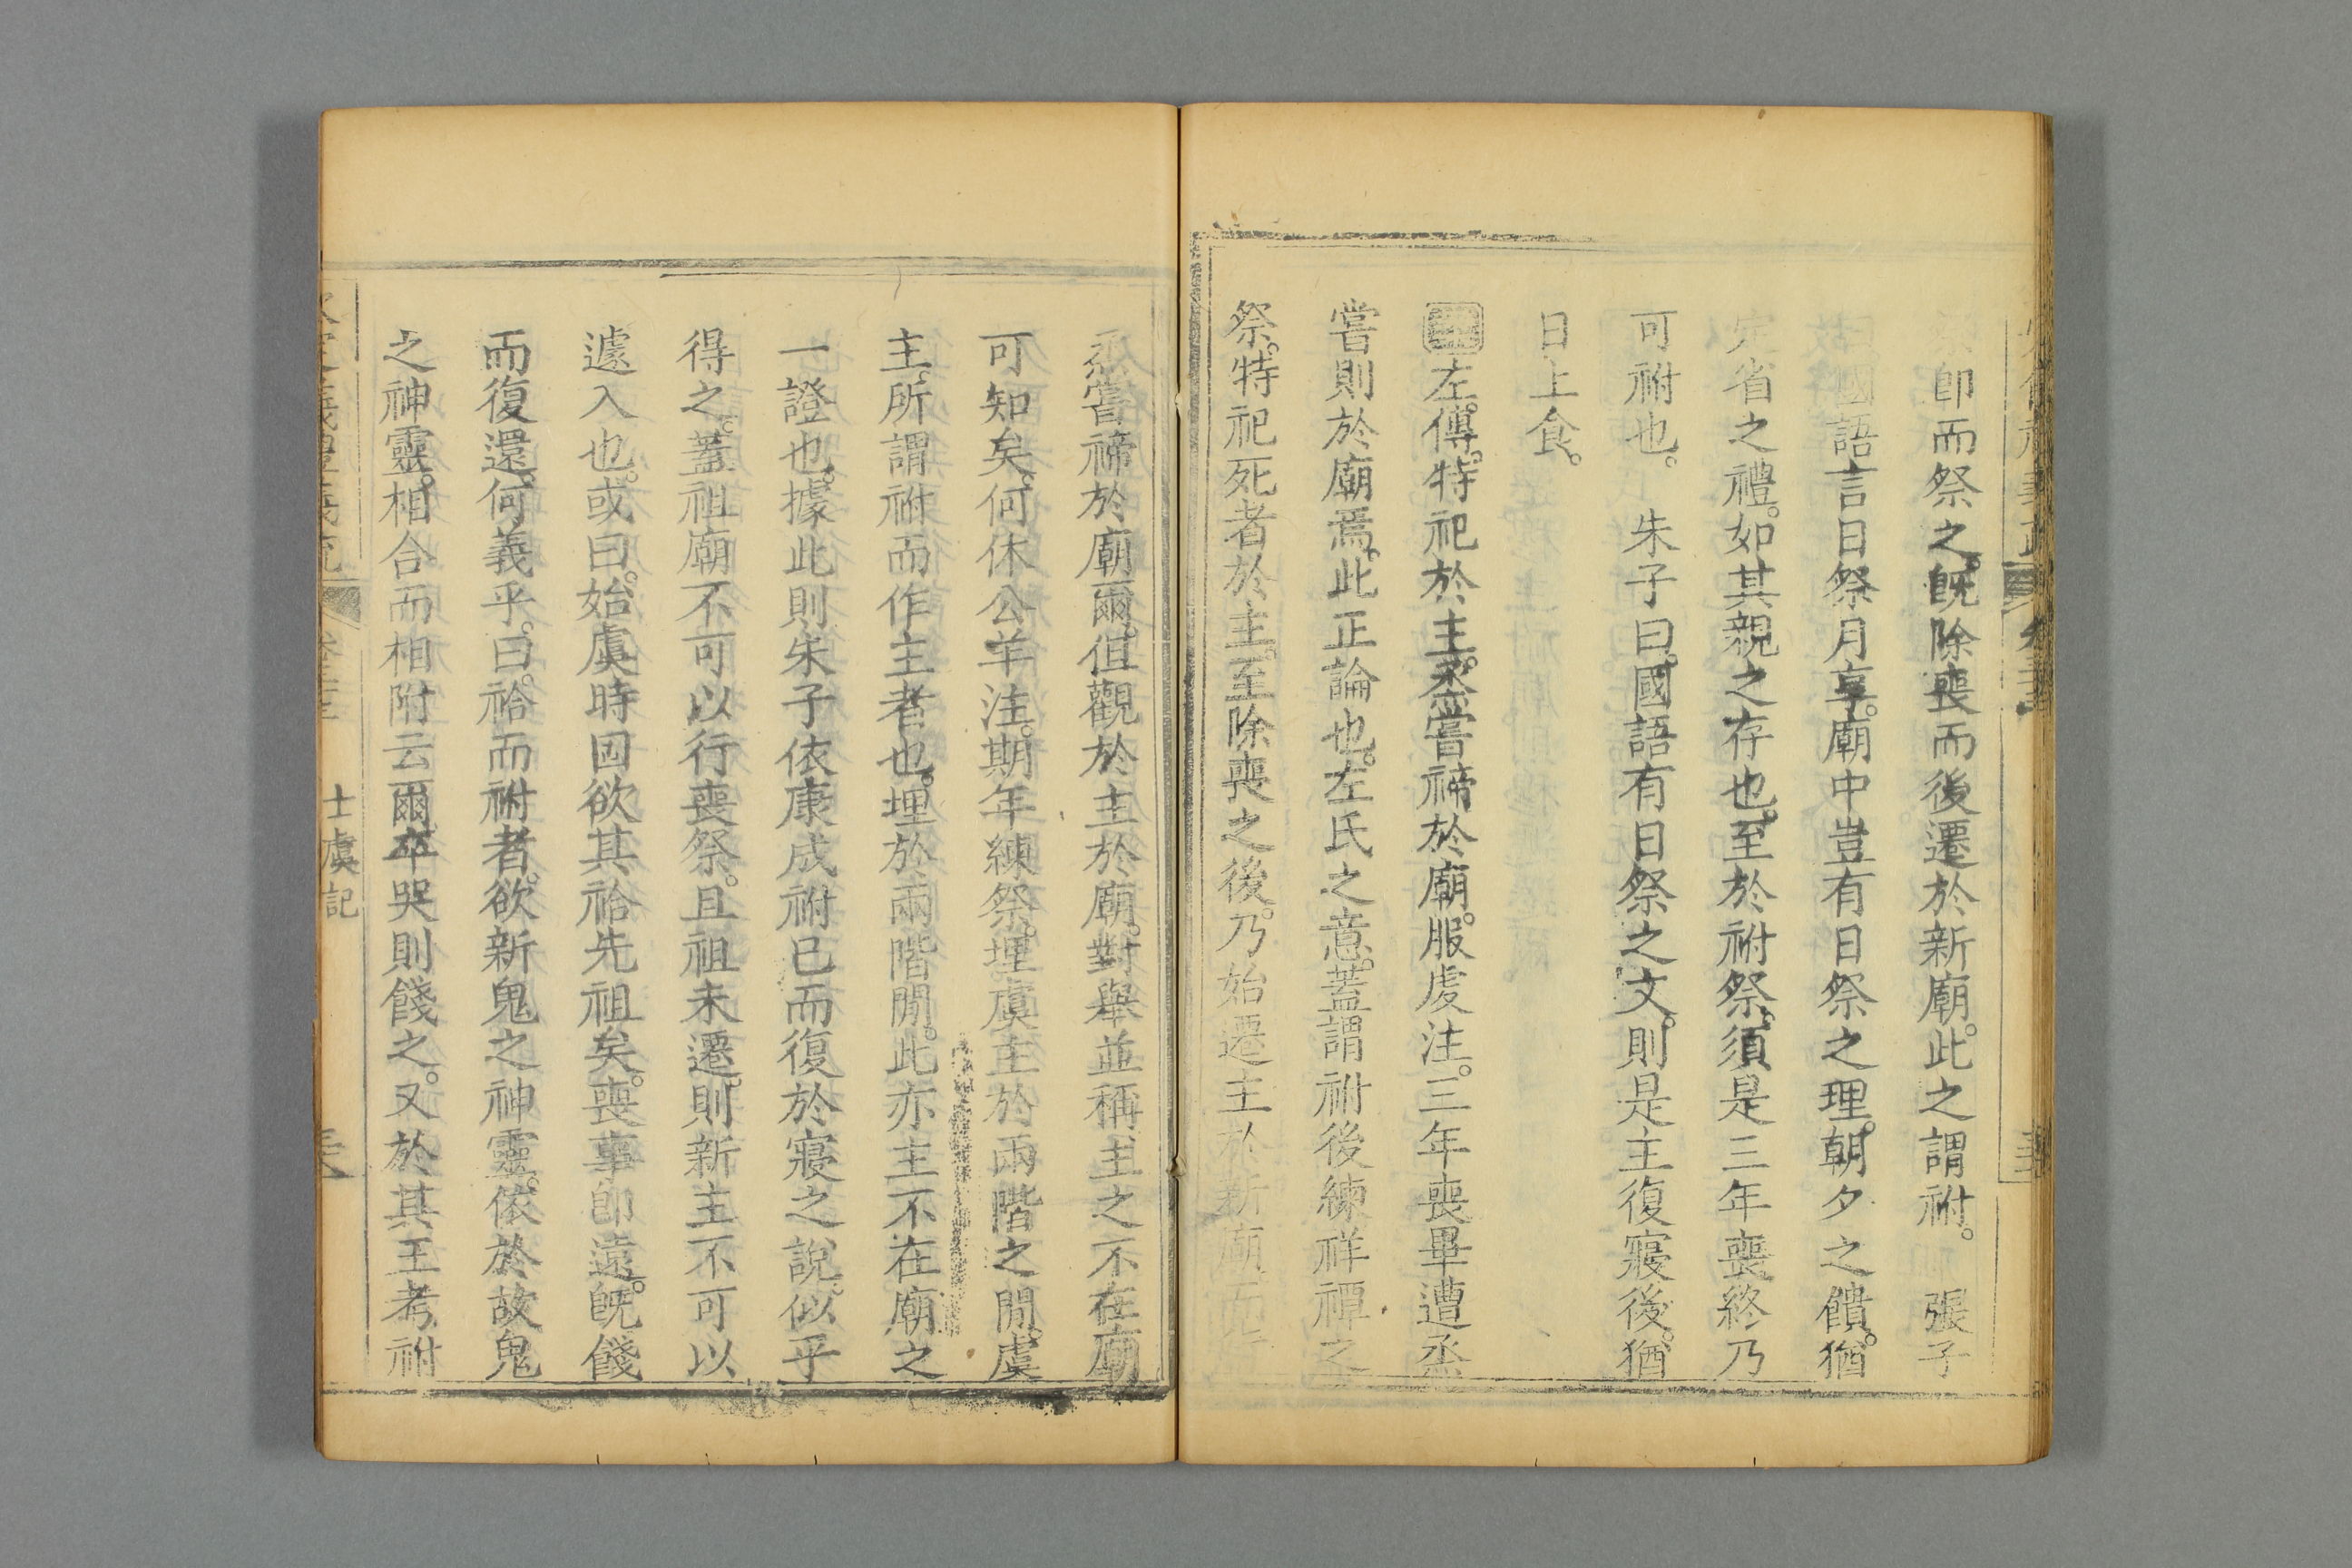 卽而祭之。旣除喪而後遷於新廟。此之謂祔。　張子
國語言日祭月享。廟中豈有日祭之理。朝夕之饋。猶
定省之禮。如其親之存也。至於祔祭。須是三年喪終乃
可祔也。　朱子曰。國語有日祭之文。則是主復寢後。猶
日上食。
左傳。特祀於主。烝嘗禘於廟。服虔注。三年喪畢遭烝
嘗則於廟焉。此正論也。左氏之意。蓋謂祔後練祥禫之
祭。特祀死者於主。至除喪之後。乃始遷主於新廟而
烝嘗禘於廟爾。但觀於主於廟。對舉並稱。主之不在廟
可知矣。何休公羊注。期年練祭。埋虞主於兩階之閒。虞
主。所謂祔而作主者也。埋於兩階閒。此亦主不在廟之
一證也。據此則朱子依康成祔已而復於寢之說。似乎
得之。蓋祖廟不可以行喪祭。且祖未遷。則新主不可以
遽入也。或曰。始虞時固欲其祫先祖矣。喪事卽遠。旣餞
而復還。何義乎。曰。祫而祔者。欲新鬼之神靈。依於故鬼
之神靈。相合而相附云爾。卒哭則餞之。又於其王考祔
士虞記